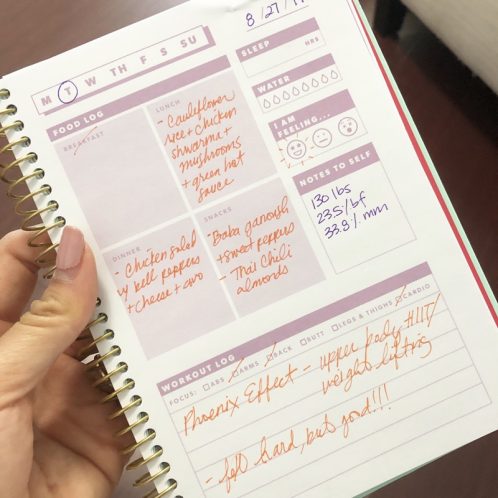 8/27/19
M T W TH F S SU
SLEEP
HRS
WATER
I AM FEELING...
NOTES TO SELF
130 lbs
23.5% bf
33.9% mm
FOOD LOG
BREAKFAST
LUNCH
- Cauliflower
rice + chicken
shwarma +
mushrooms
+ green hot
sauce
DINNER
- Chicken salad
w/ bell peppers
+ cheese + avo
SNACKS
- Baba ganough
+ sweet peppers
- Thai Chili
almonds
WORKOUT LOG
FOCUS: ABS ARMS BACK BUTT LEGS & THIGHS CARDIO
Phoenix Effect - upper body HIIT/
weight lifting
- felt hard, but good!!!